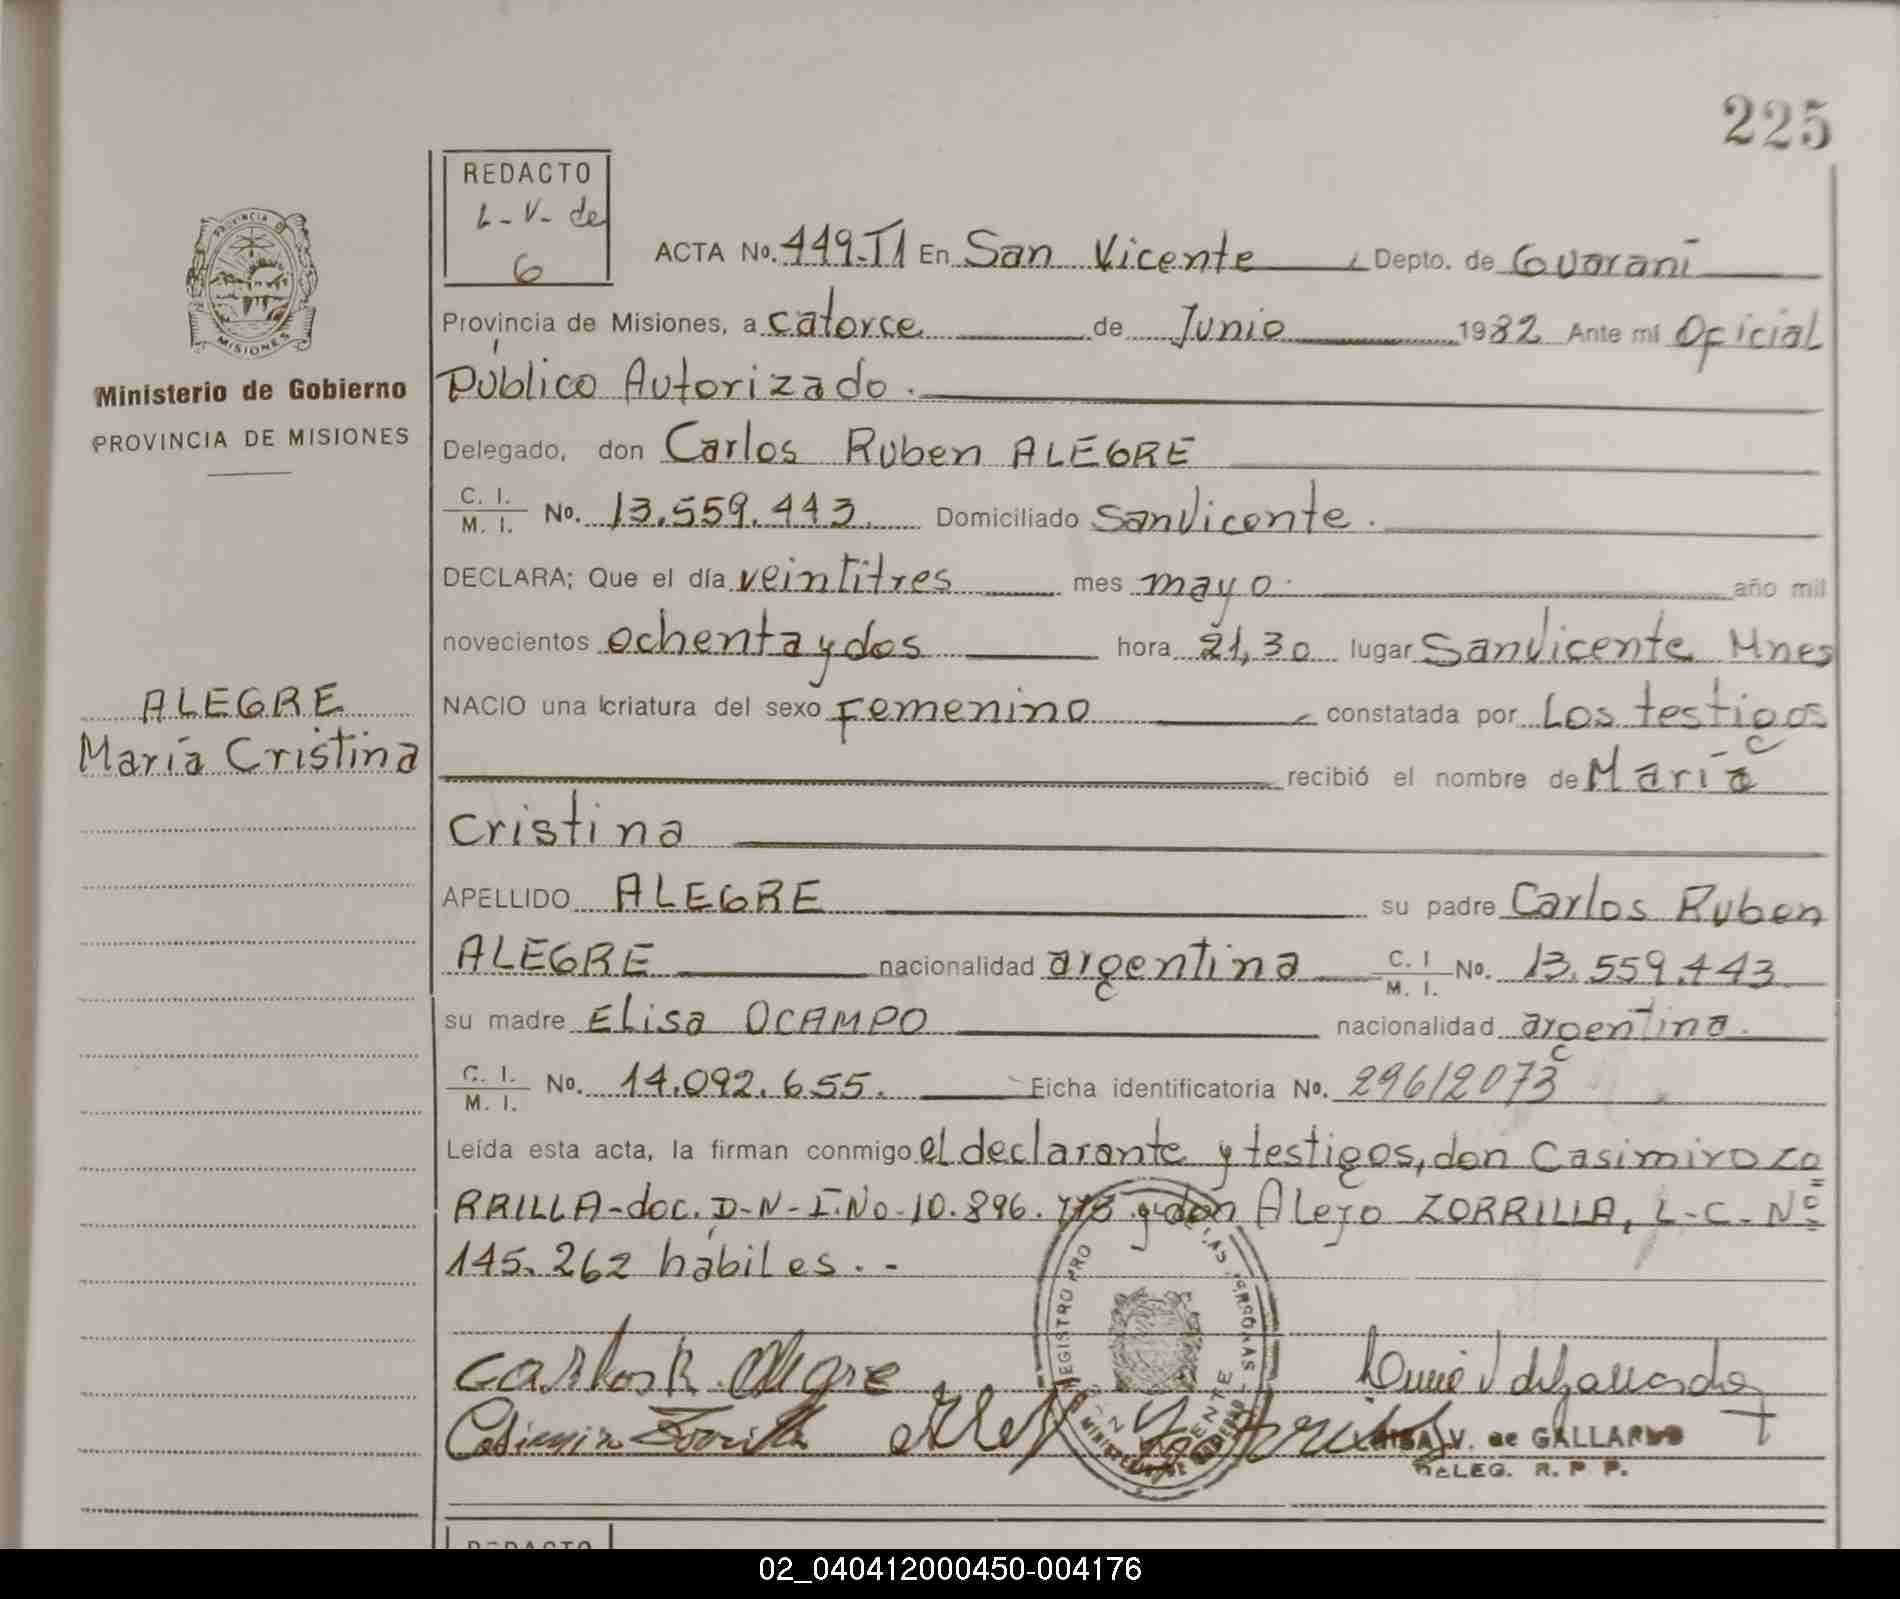 225
REDACTO
L-V- de
G
ACTA No. 449-T1 En San Vicente Depto. de Guaraní
Provincia de Misiones, a catorce de Junio 1982 Ante mí Oficial
Público Autorizado.
Delegado, don Carlos Ruben ALEGRE
C. I.
M. I. No. 13.559.443 Domiciliado San Vicente.
DECLARA; Que el día veintitres mes mayo año mil
novecientos ochenta y dos hora 21,30 lugar San Vicente Mnes
NACIO una criatura del sexo Femenino constatada por Los testigos
recibió el nombre de María
Cristina
APELLIDO ALEGRE su padre Carlos Ruben
ALEGRE nacionalidad argentina C. I
M. I. No. 13.559.443
su madre Elisa OCAMPO nacionalidad argentina.
C. I.
M. I. No. 14.092.655. Ficha identificatoria No. 29612073
Leída esta acta, la firman conmigo el declarante y testigos, don Casimiro ZO
RRILLA-doc. D-N-I-No-10.896.773 y don Alejo ZORRILLA, L-C-Nº
145.262 hábiles.-
Carlos R. Alegre
Casimiro Zorrilla
LUISA V. de GALLARDO
DELEG. R. P. P.
PROVINCIA DE
MISIONES
Ministerio de Gobierno
PROVINCIA DE MISIONES
ALEGRE
María Cristina
REGISTRO PRO LAS PERSONAS
MINISTERIO DE GOBIERNO
REDACTO
02_040412000450-004176